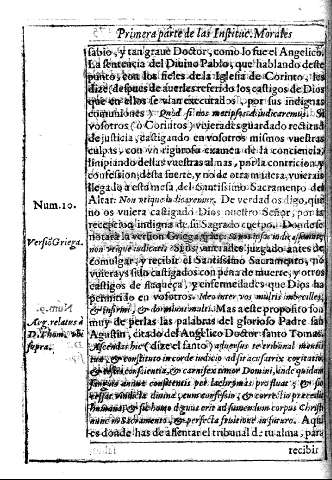 Primera parte de las Instituc. Morales
sabio, y tan graue Doctor, como lo fue el Angelico.
La sentencia del Diuino Pablo, que hablando deste
punto, con los fieles de la Iglesia de Corinto, les
dize, despues de auerles referido los castigos de Dios
que en ellos se vían executados, por sus indignas
comuniones) Quod si nos metipsos dijudicaremus. Si
vosotros (ò Corintos) vuierades guardado rectitud
de justicia, castigando en vosotros mismos vuestras
culpas, con vn riguroso examen de la conciencia,
limpiando dellas vuestras almas, por la contricion, y
confession, desta suerte, y no de otra manera, vuierais
llegado a esta mesa del Santissimo Sacramento del
Num. 10.
Altar: Non vtique iudicaremur. De verdad os digo, que
no os vuiera castigado Dios nuestro Señor, por la
recepcion indigna de su Sagrado cuerpo. Donde se
notará la version Griega, que
Versió Griega.
non vtique iudicati: Si os vuierades juzgado antes de
comulgar, y recibir el Santissimo Sacramento, no
vuierays sido castigados con pena de muerte, y otros
castigos de flaqueça, y enfermedades que Dios ha
permitido en vosotros. Ideo inter vos multi imbecilles,
& infirmi, & dormiunt multi. Mas a este proposito son
Aug. relatus à
muy de perlas las palabras del glorioso Padre san
D. Thom. vbi
Agustin, citado del Angelico Doctor santo Tomas.
supra.
Ascendat hic (dize el santo) aduersus te tribunal mentis
tuæ, & constituto in corde iudicio adsit accusatrix cogitatio,
& testis conscientia, & carnifex timor Domini, inde quidam
sanguis animæ confitentis per lachrymas profluat, & sic
humana, & sic homo dignus erit ad sumendum corpus Christi
nunc in Sacramento, & perfecta fruitione in futuro. Aqui
es donde has de assentar el tribunal de tu alma, para
recibir